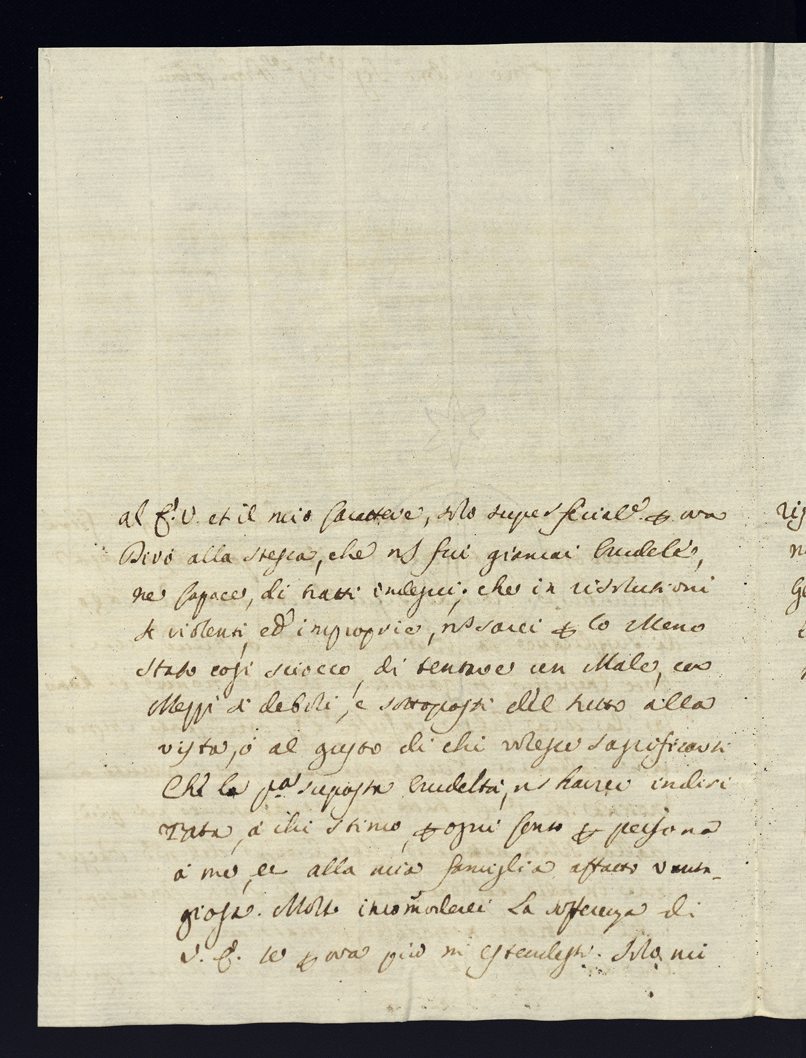 al E. V. et il mio Carattere, solo superficial.e ꝑ ora
Dirò alla stessa, che nꝭ fui giamai Crudele,
ne Capace, di tratti indegni; che in risolutioni
sì violenti, ed improprie, nꝭ sarei ꝑ lo Meno
stato così sciocco, di tentare un Male, con
Mezzi sì deboli, e sottoposti del tutto alla
vista, ò al gusto di chi volesse sagrificarsi
Chè la p.a suposta Crudeltà, nꝭ haurei indiri
zata, à chi stimo, ꝑ ogni Conto ꝑ persona
à me, et alla mia famiglia affatto vanta-
giosa. Molto incomoderei La sofferenza di
V. E. se ꝑ ora più mi estendessi. Solo mi